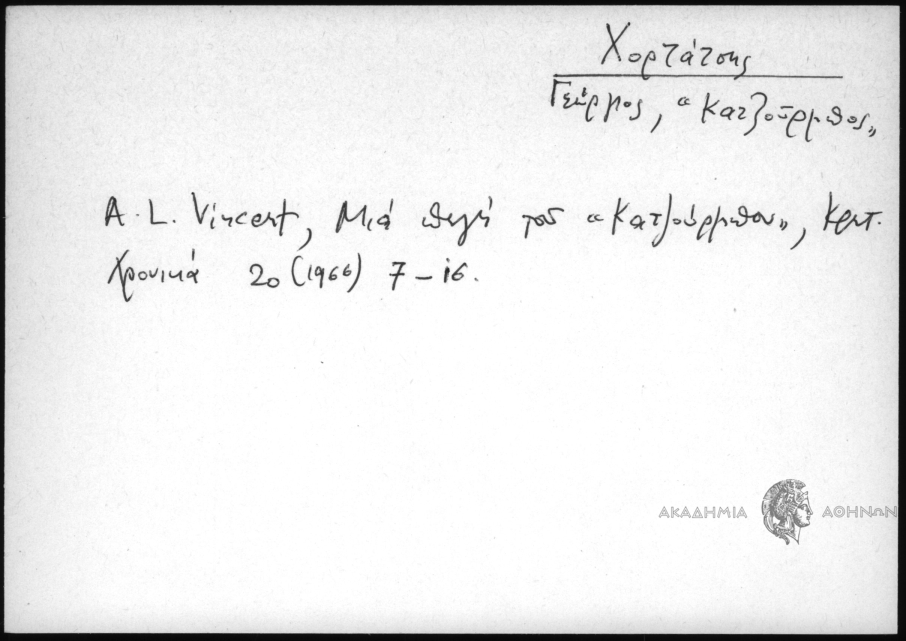 Χορτάτσης
Γεώργιος, “Κατζοῦρμπος„
A. L. Vincent, Μιά πηγή τοῦ “Κατζούρμπου„, Κρητ.
Χρονικά 20 (1966) 7 – 16.
ΑΚΑΔΗΜΙΑ ΑΘΗΝΩΝ